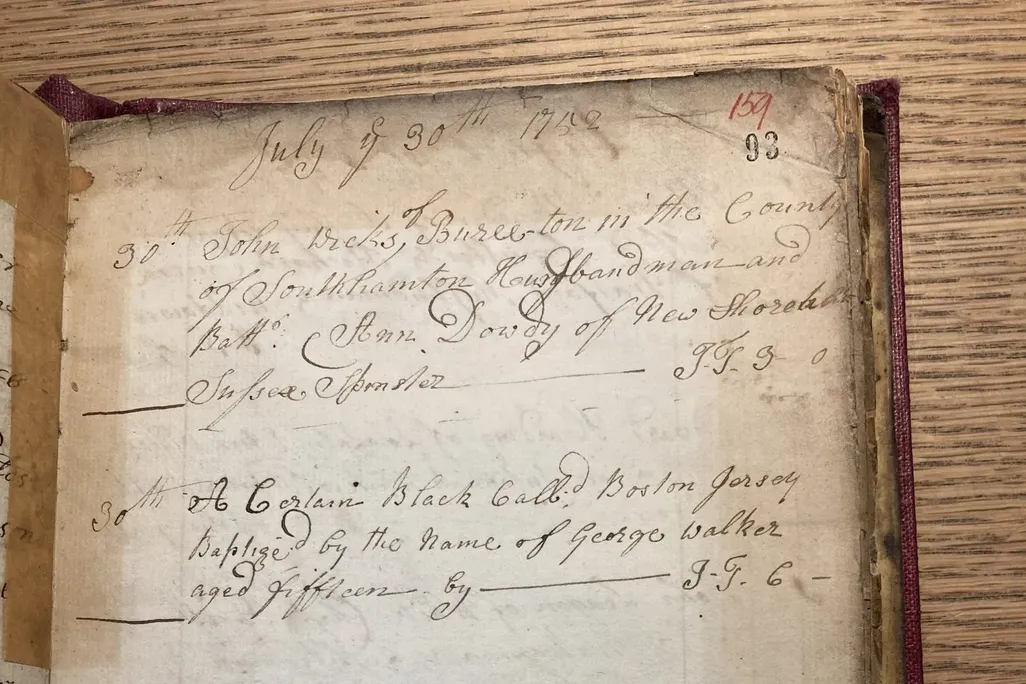 July ye 30th 1752
159
93
30th John Wicks of Buree-ton in the County
of Southhamton Husbandman and
Batt:o Ann Dowdy of New Shoreham
Sussex Spinster J-T. 3 0
30th A Certain Black Call:d Boston Jersey
Baptize'd by the Name of George Walker
aged fifteen by J-T. 6 -